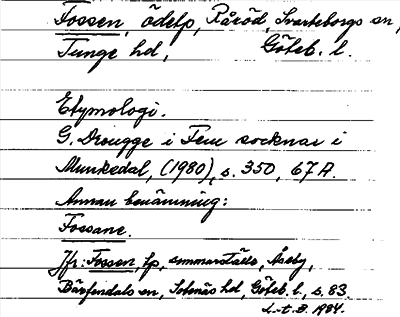 Fossen, ödelp, Råröd, Svarteborgs sn,
Tunge hd, Göteb. l.
Etymologi.
G. Drougge i Fem socknar i
Munkedal, (1980), s. 350, 67A.
Annan benämning:
Fossane.
Jfr: Fossen, lp, sommarställe, Åseby,
Bärfendals sn, Sotenäs hd, Göteb. l., s. 83.
L-t. B. 1984.